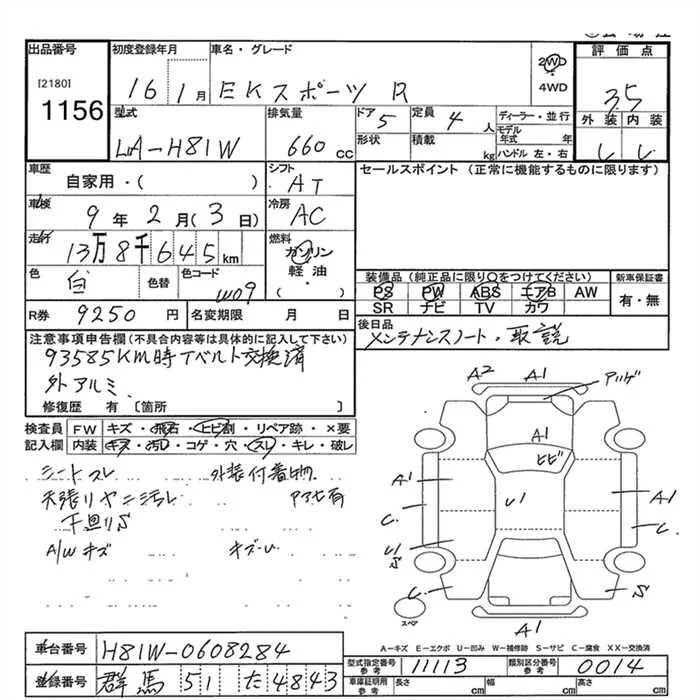 出品番号 初度登録年月 車名・グレード 評価点
[2180] 1156 16 1月 EKスポーツ R 2WD 4WD 3.5
型式 排気量 ドア 定員 ディーラー・並行 外装 内装
LA-H81W 660cc 5 4人 モデル年式 年
形状 積載 kg ハンドル 左・右
車歴 シフト セールスポイント (正常に機能するものに限ります)
自家用・( ) AT
車検 冷房
9年2月(3日) AC
走行 燃料
13万8千645km ガソリン 軽油・( )
色 白 色替 色コード W09
装備品(純正品に限り○をつけてください) 新車保証書
PS PW ABS エアB AW 有・無
SR ナビ TV カワ
R券 9250円 名変期限 月 日
後日品 メンテナンスノート・取説
注意事項申告欄(不具合内容等は具体的に記入して下さい)
93585KM時Tベルト交換済
外アルミ
修復歴 有 [箇所 ]
検査員記入欄 FW キズ・飛石・ヒビ割・リペア跡・×要
内装 キズ・汚れ・コゲ・穴・スレ・キレ・破レ
シートスレ 外装付着物
天張リヤニ汚レ アセ有
下廻りS
A/Wキズ キズ・U
A2 A1 アリゲ
A1
ヒビ
A1 U1 A1
C C
U1
S
C S
スペア
A1
A-キズ E-エクボ U-凹み W-補修跡 S-サビ C-腐食 XX-交換済
車台番号 H81W-0608284
型式指定番号 参考 11113 類別区分番号 参考 0014
登録番号 群馬 51 た 4843
車庫証明用 参考 長さ cm 幅 cm 高さ cm